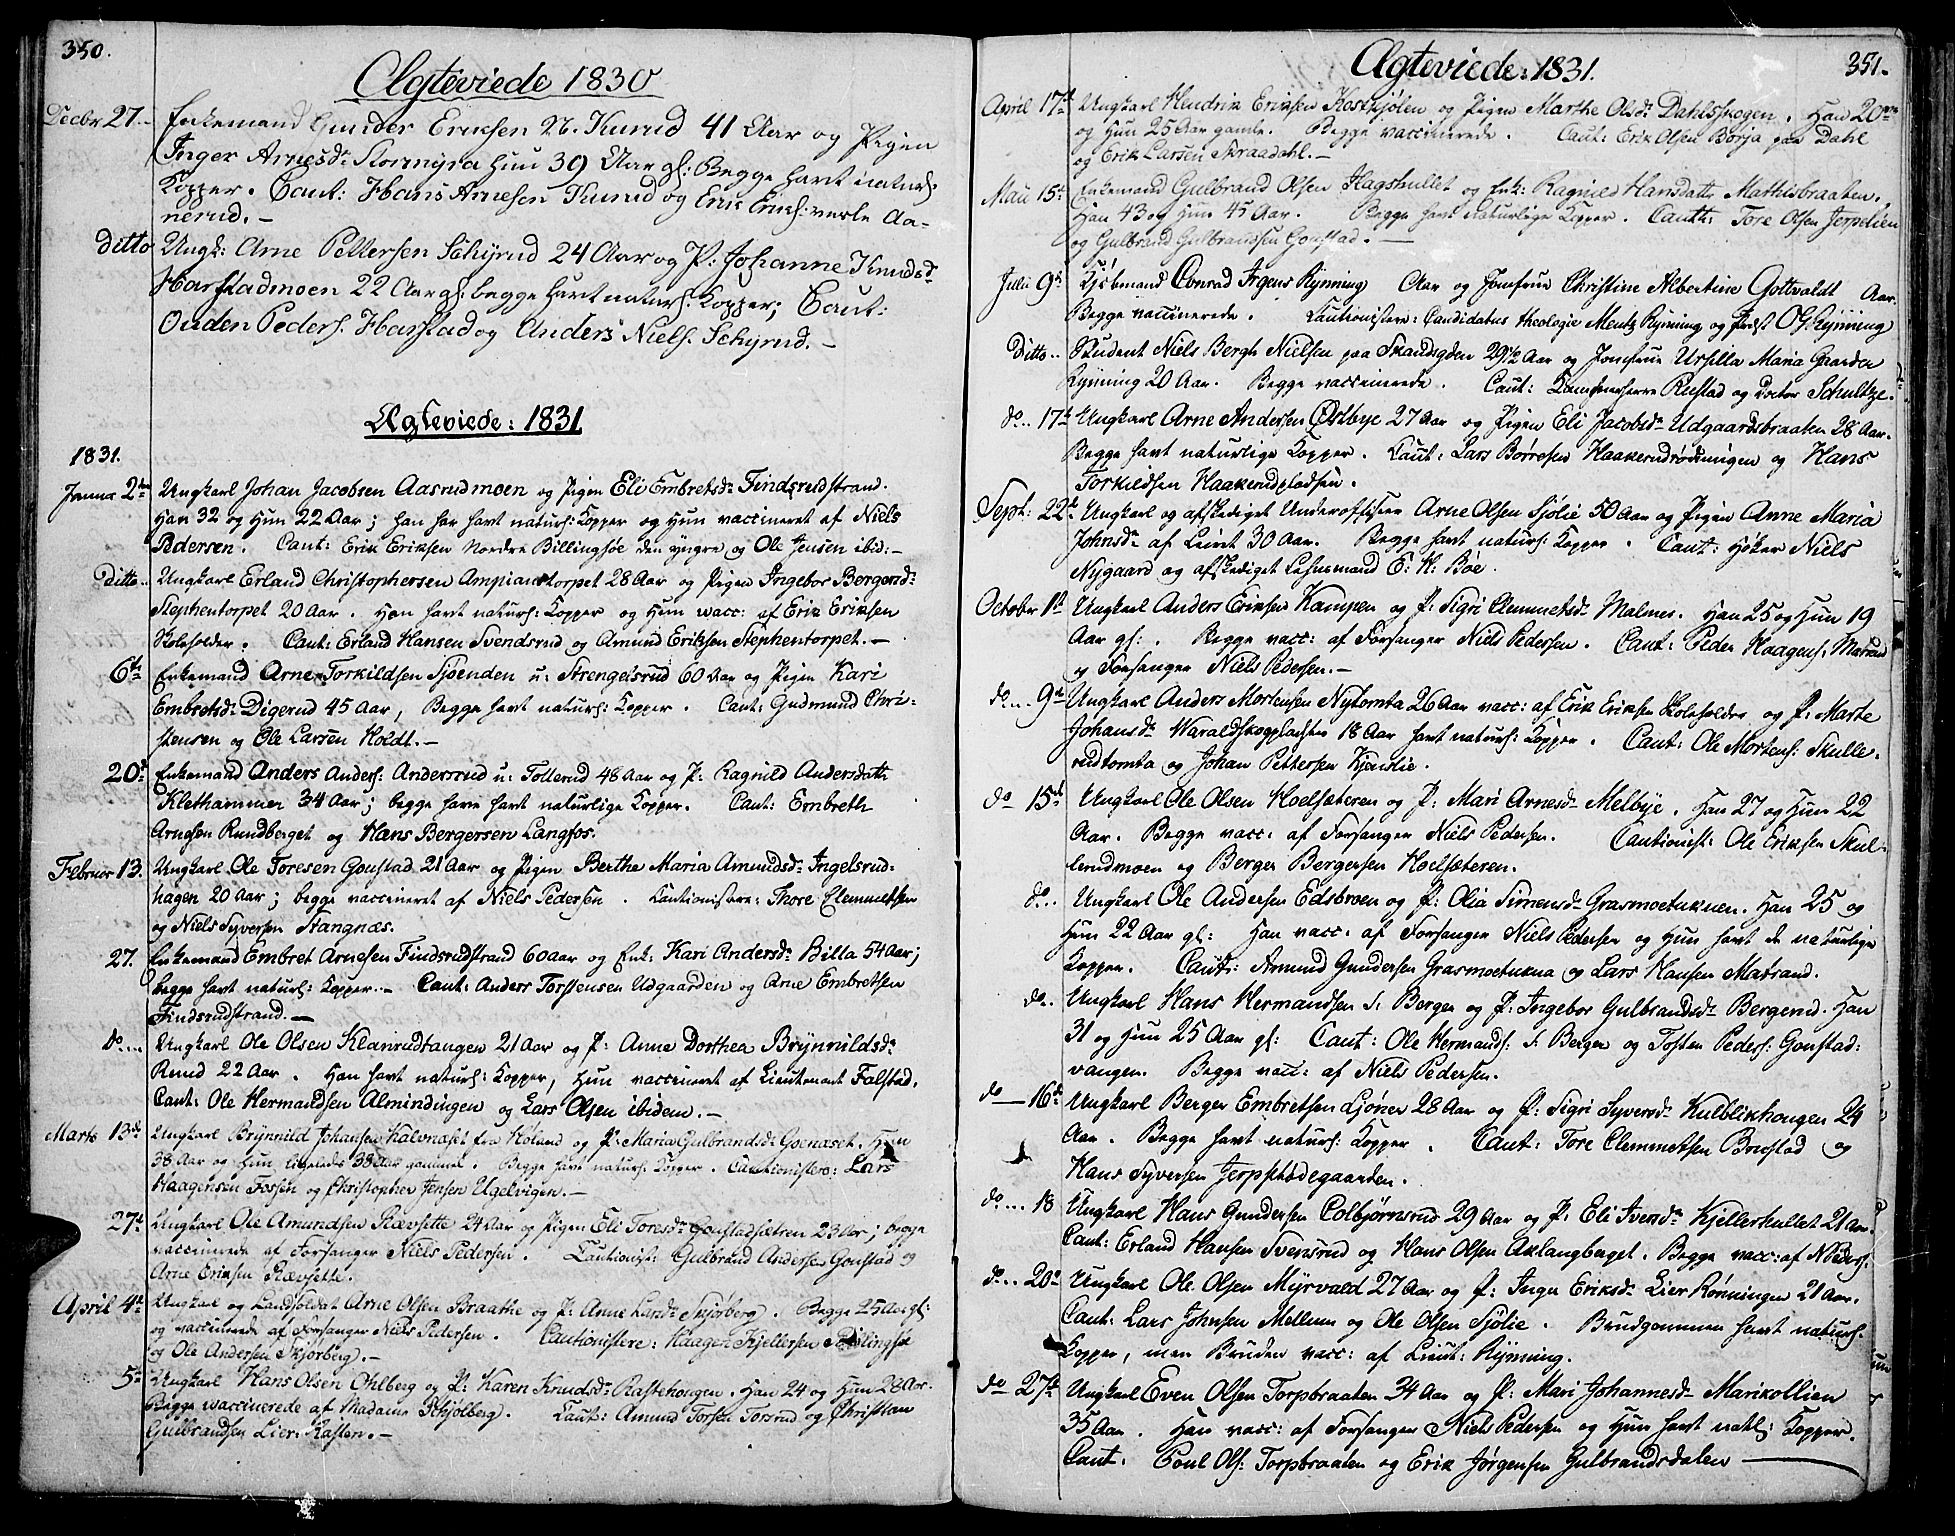 350.
Ægteviede 1830
Decbr 27. Enkemand Gunder Eriksen N. Kurud 41 Aar og Pigen
Inger Arnesdr Stormyra hun 39 Aar gl: Begge havt naturl:
Kopper. Caut: Hans Arnesen Kurud og Erik Eriks: verle Aa-
nerud.-
ditto Ungk: Arne Pettersen Schyrud 24 Aar og P: Johanne Knudsdr
Harstadmoen 22 Aar gl: begge havt naturl: Kopper; Caut:
Ouden Peders. Harstad og Anders Niels. Schyrud.-
Ægteviede: 1831
1831.
Januar 2den Ungkarl Johan Jacobsen Aasrudmoen og Pigen Eli Embretsdr Findsrudstrand.
Han 32 og Hun 22 Aar; han har havt naturl: Kopper og Hun vaccineret af Niels
Pedersen. Caut: Erik Eriksen Nordre Billingsøe den yngre og Ole Jensen ibid:-
Ditto.. Ungkarl Erland Christophersen Ampianstorpet 28 Aar og Pigen Ingebor Bergersdr
Stephentorpet 20 Aar. Han havt naturl: Kopper og Hun vacc: af Erik Eriksen
Skoleholder. Caut: Erland Hansen Svendsrud og Amund Eriksen Stephentorpet.-
6te Enkemand Arne Torkildsen Sjøenden u: Strengelsrud 60 Aar og Pigen Kari
Embretsdr Digerud 45 Aar, Begge havt naturl: Kopper. Caut: Gudmund Chri-
stensen og Ole Larsen Holdt.-
20de Enkemand Anders Anders: Andersrud u: Tollerud 48 Aar og P: Ragnild Andersdatr
Klethammer 34 Aar; begge have havt naturlige Kopper. Caut: Embreth
Arnesen Rundberget og Hans Bergersen Langfos.
Februar 13. Ungkarl Ole Toresen Gonstad 21 Aar og Pigen Berthe Maria Amundsdr Ingelsrud-
hagen 20 Aar; begge vaccineret af Niels Pedersen. Cautionistere: Thore Clemmetsen
og Niels Syversen Stangnæs.
27. Enkemand Embret Arnesen Findsrudstrand 60 Aar og Enk: Kari Andersdr Billa 54 Aar;
begge havt naturl: Kopper.- Caut: Anders Torstensen Udgaarden og Arne Embretsen
Findsrudstrand.-
do.... Ungkarl Ole Olsen Klanrudtangen 21 Aar og P: Anne Dorthea Brynnildsdr
Rund 22 Aar. Han havt naturl: Kopper, Hun vaccineret af Lieutenant Falstad.
Caut: Ole Hermandsen Almindingen og Lars Olsen ibidem.-
Marts 13de Ungkarl Brynnild Johansen Kalvnaset fra Høland og P: Maria Gulbrandsdr Goenaset. Han
38 Aar og Hun ligeledes 38 Aar gammel. Begge havt naturl: Kopper. Cautionistere: Lars
Haagensen Fossen og Christopher Jensen Ugelvigen.-
27de Ungkarl Ole Amundsen Rævsette 24 Aar og Pigen Eli Toresdr Gonstadsætren 23 Aar; begge
vaccinerede af Forsanger Niels Pedersen. Cautionist: Gulbrand Andersen Gonstad og
Arne Eriksen Rævsette.
April 4de Ungkarl og Landsoldat Arne Olsen Braathe og P: Anne Larsdr Skjøberg. Begge 25 Aar gl:
og vaccinerede af Forsanger Niels Pedersen. Cautionistere: Haagen Kjellersen Billingsøe
og Ole Andersen Skjørberg.-
5te Ungkarl Hans Olsen Ohlberg og P: Karen Knudsdr Rastehougen. Han 24 og Hun 28 Aar.
Begge vaccinerede af Madame Schjølberg. Caut: Amund Torsen Torsrud og Christian
Gulbrandsen Lier: Rasten.-
351.
Ægteviede: 1831.
April 17de Ungkarl Hendrik Eriksen Koskjølen og Pigen Marthe Olsdr Dahlsskogen. Han 20
og Hun 25 Aar gamle. Begge vaccinerede. Caut: Erik Olsen Børja paa Dahl
og Erik Larsen Skraadahl.-
Mai 15de Enkemand Gulbrand Olsen Hagshullet og Enk: Ragnild Hansdatr Mathisbraaten.
Han 43 og Hun 45 Aar. Begge havt naturlige Kopper. Caut: Tore Olsen Jerpelien
og Gulbrand Gulbrandsen Gonstad.-
Julii 9de Kjøbmand Conrad Irgens Rynning Aar og Jomfrue Christine Albertine Gottvaldt Aar.
Begge vaccinerede. Cautionistere: Candidatus theologie Mentz Rynning og Præst O. Rynning
Ditto.. Student Niels Bergh Nielsen paa Skandsgden 29½ Aar og Jomfrue Ursilla Maria Gaarder
Rynning 20 Aar. Begge vaccinerede. Caut: Kammerherre Rustad og Doctor Schultze.
do.. 17de Ungkarl Arne Andersen Østbye 27 Aar og Pigen Eli Jacobsdr Udgaardsbraaten 28 Aar.
Begge havt naturlige Kopper. Caut: Lars Børresen Haakerudrødningen og Hans
Torkildsen Haakerudpladsen.
Septr: 22de Ungkarl og afskediget Underofficer Arne Olsen Sjølie 50 Aar og Pigen Anne Maria
Johnsdr af Leiret 30 Aar. Begge havt naturl: Kopper. Caut: Høker Niels
Nygaard og afskediget Lehnsmand E: H: Bøe.
October 1ste Ungkarl Anders Eriksen Kampen og P: Sigri Clemmetsdr Malmer. Han 25 og Hun 19
Aar gl:. Begge vacc: af Forsanger Niels Pedersen. Caut: Peder Haagens: Matrand
og Forsanger Niels Pedersen.-
do... 9de Ungkarl Anders Mortensen Nytomta 26 Aar vacc: af Erik Eriksen Skoleholder og P: Marte
Johansdr Waraldskogpladsen 18 Aar havt naturl: Kopper. Caut: Ole Mortens: Skulle-
rudtomta og Johan Pettersen Kjenslie.
do 15de Ungkarl Ole Olsen Hoelsæteren og P: Mari Arnesdr Melbye. Han 27 og Hun 22
Aar. Begge vacc: af Forsanger Niels Pedersen. Cautionist: Ole Eriksen Skul-
lerudmoen og Berger Bergersen Hoelsæteren.
do.. Ungkarl Ole Andersen Edsbroen og P: Olia Simensdr Grasmoetuknen. Han 25 og
Hun 22 Aar gl: Han vacc: af Forsanger Niels Pedersen og Hun havt de naturlige
Kopper. Caut: Amund Gundersen Grasmoetukna og Lars Hansen Matrand.
do.. Ungkarl Hans Hermandsen S: Berger og P: Ingebor Gulbrandsdr Bergerud. Han
31 og Hun 25 Aar gl: Caut: Ole Hermands: S: Berger og Tosten Peders: Gonstad:
vangen. Begge vacc: af Niels Pedersen.
do — 16de Ungkarl Berger Embretsen Ljøner 28 Aar og P: Sigri Syversdr Kulblikhougen 24
Aar. Begge havt naturl: Kopper. Caut: Tore Clemmetsen Brustad og
Hans Syversen Jerpsetødegaarden.
do.... 18 Ungkarl Hans Gundersen Colbjørnsrud 29 Aar og P: Eli Iversdr Kjellerhullet 21 Aar.
Caut: Erland Hansen Svensrud og Hans Olsen Aklangberget. Begge vacc: af N: Peders:
do.. 20de Ungkarl Ole Olsen Myrvald 27 Aar og P: Inger Eriksdr Lier Rønningen 21 Aar.
Caut: Lars Johnsen Mellem og Ole Olsen Sjølie. Brudgommen havt naturl:
Kopper, men Bruden vacc: af Lieut: Rynning.
do 27de Ungkarl Even Olsen Torpbraaten 34 Aar og P: Mari Johannesdr Marikollien
35 Aar. Han vacc: af Forsanger Niels Pedersen og Hun havt natl: Kopper.
Caut. Poul Ols: Torpbraaten og Erik Jørgensen Gulbrandsdalen —